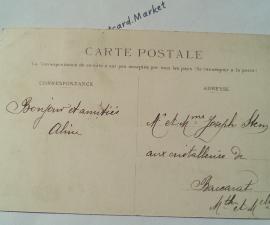 card.Market
CARTE POSTALE
La Correspondance au recto n'est pas acceptée par tous les pays (Se renseigner à la poste)
CORRESPONDANCE
ADRESSE
Bonjour et amitiés
Aline
Mr et Mme Joseph
aux cristallerie de
Baccarat
Mth et M